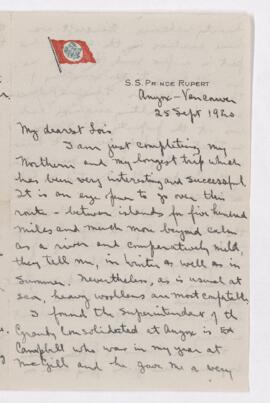 S.S. PRINCE RUPERT
Anyox - Vancouver
25 Sept 1920
My dearest Lois
I am just completing my
Northern and my longest trip which
has been very interesting and successful
It is an eye opener to go over this
route - between islands for five hundred
miles and much more beyond calm
as a river and comparatively mild,
they tell me, in winter as well as in
Summer. Nevertheless, as is usual at
sea, heavy woollens are most acceptable
I found the Superintendent of the
Granby Consolidated at Anyox is
Campbell who was in my year at
McGill and he gave me a very